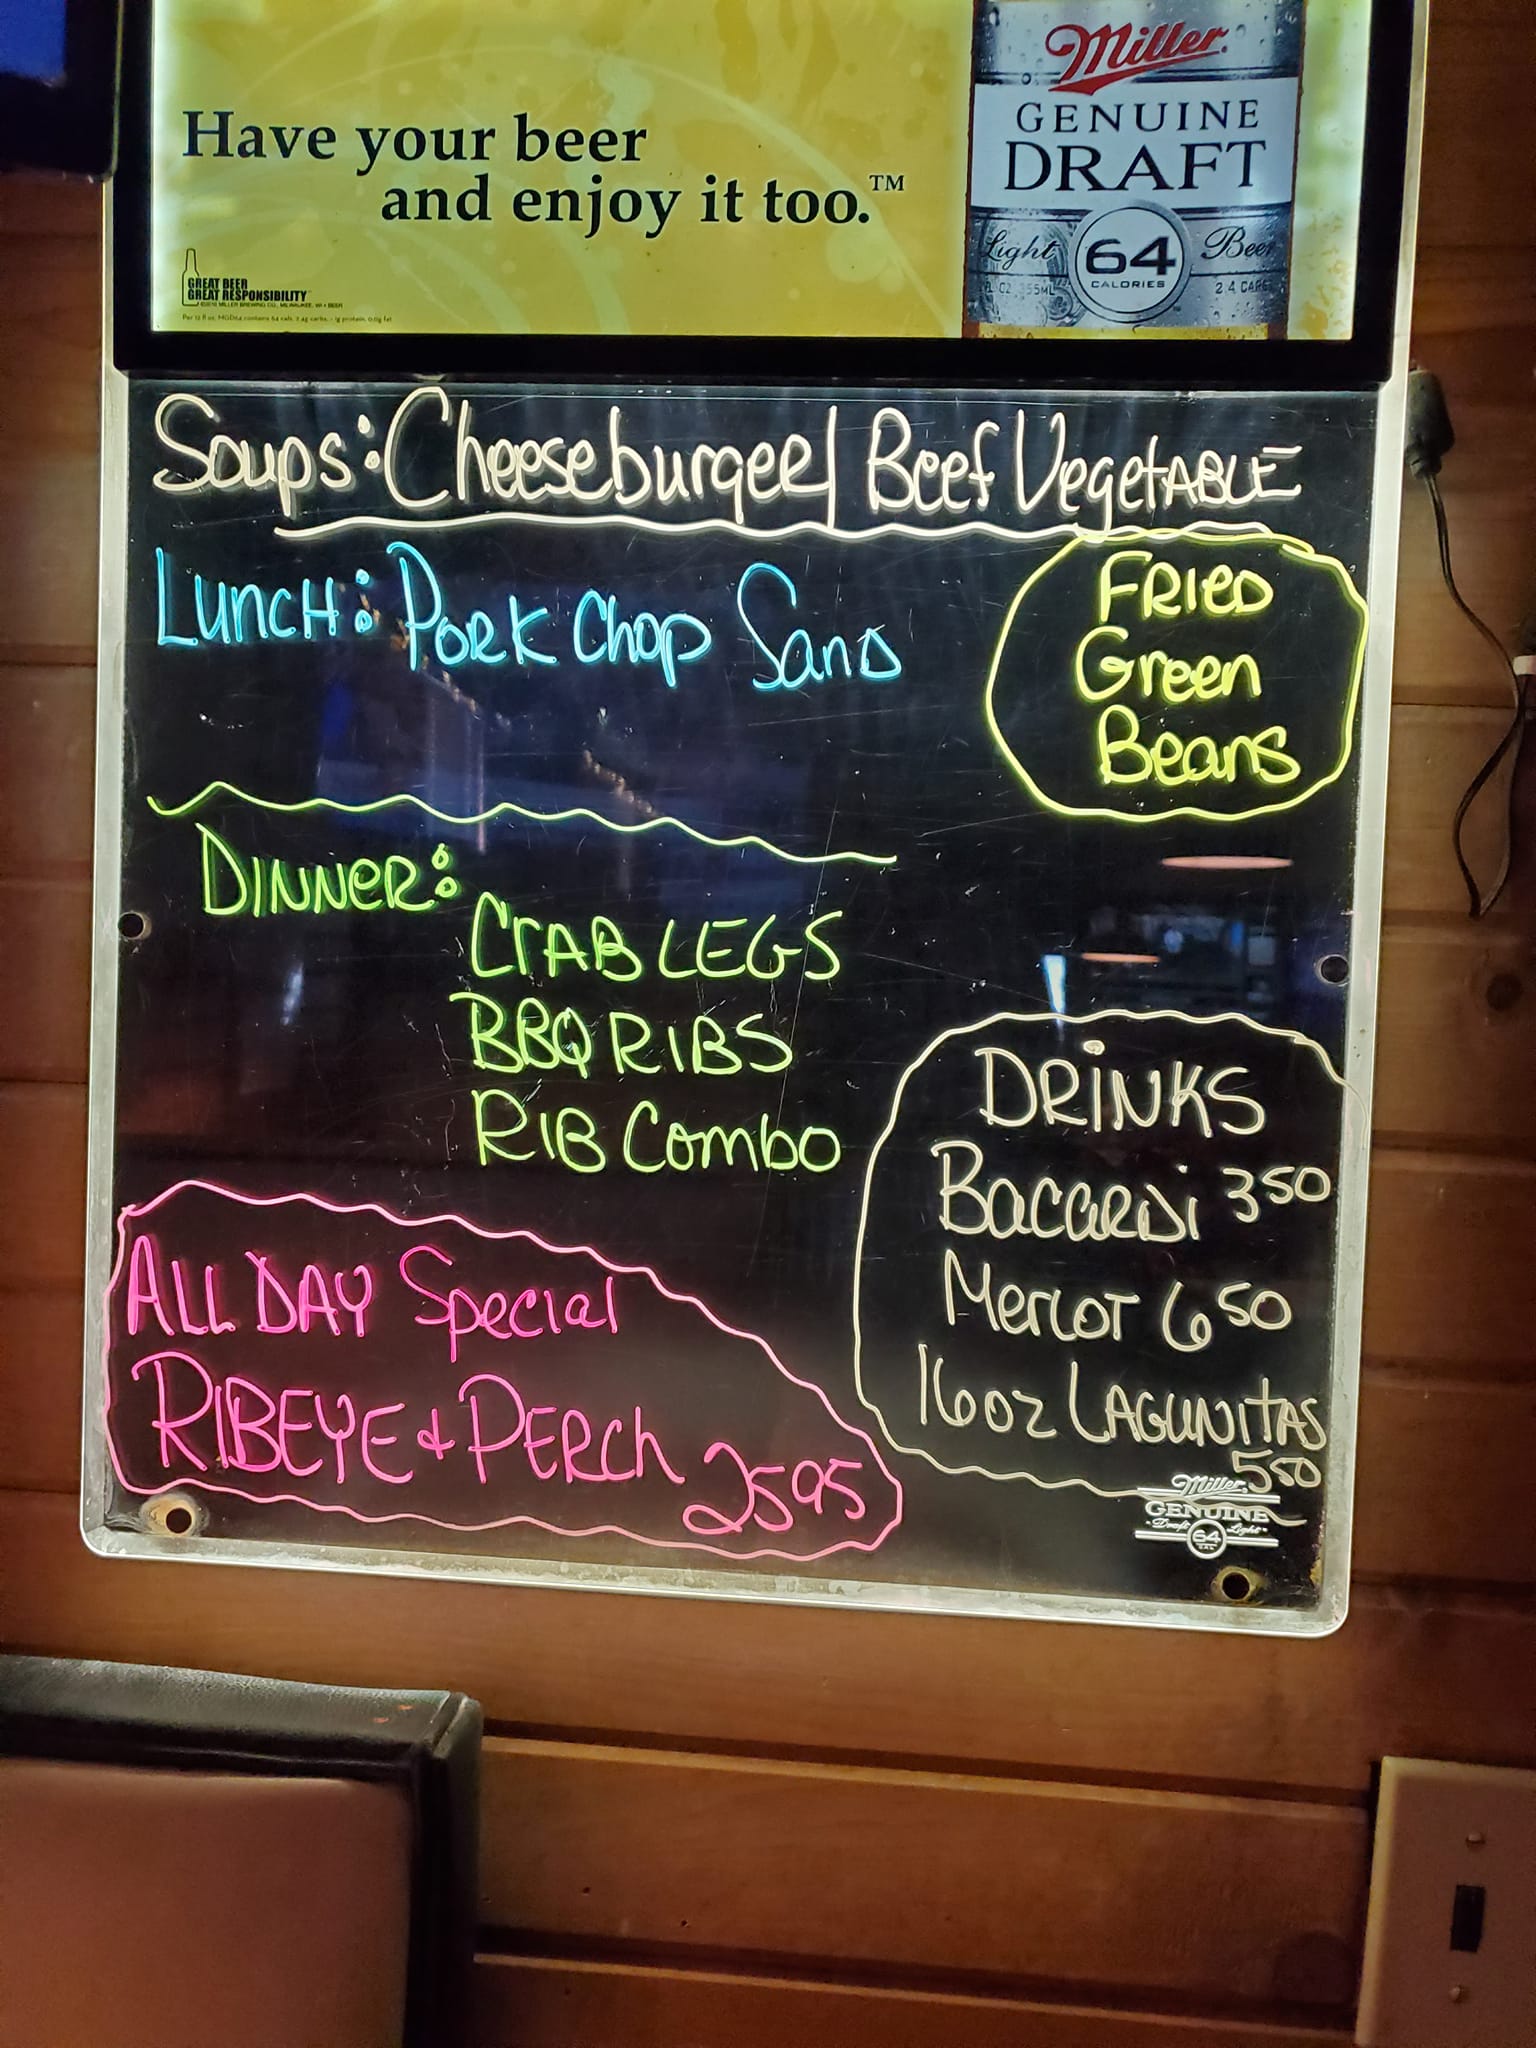 Have your beer
and enjoy it too.™
GREAT BEER
GREAT RESPONSIBILITY
Miller
GENUINE
DRAFT
Light 64 Beer
CALORIES
Soups: Cheeseburger | Beef VegetABLE
LUNCH: PORK Chop Sand
FRIED
Green
Beans
DINNER:
CRAB LEGS
BBQ RIBS
RIB Combo
DRiNKS
BacaRDi 3 50
Merlot 6 50
16oz LAGUNITAS
5 50
ALL DAY Special
RIBEYE & PERCh 25 95
Miller
GENUINE
Draft Light
64
CAL